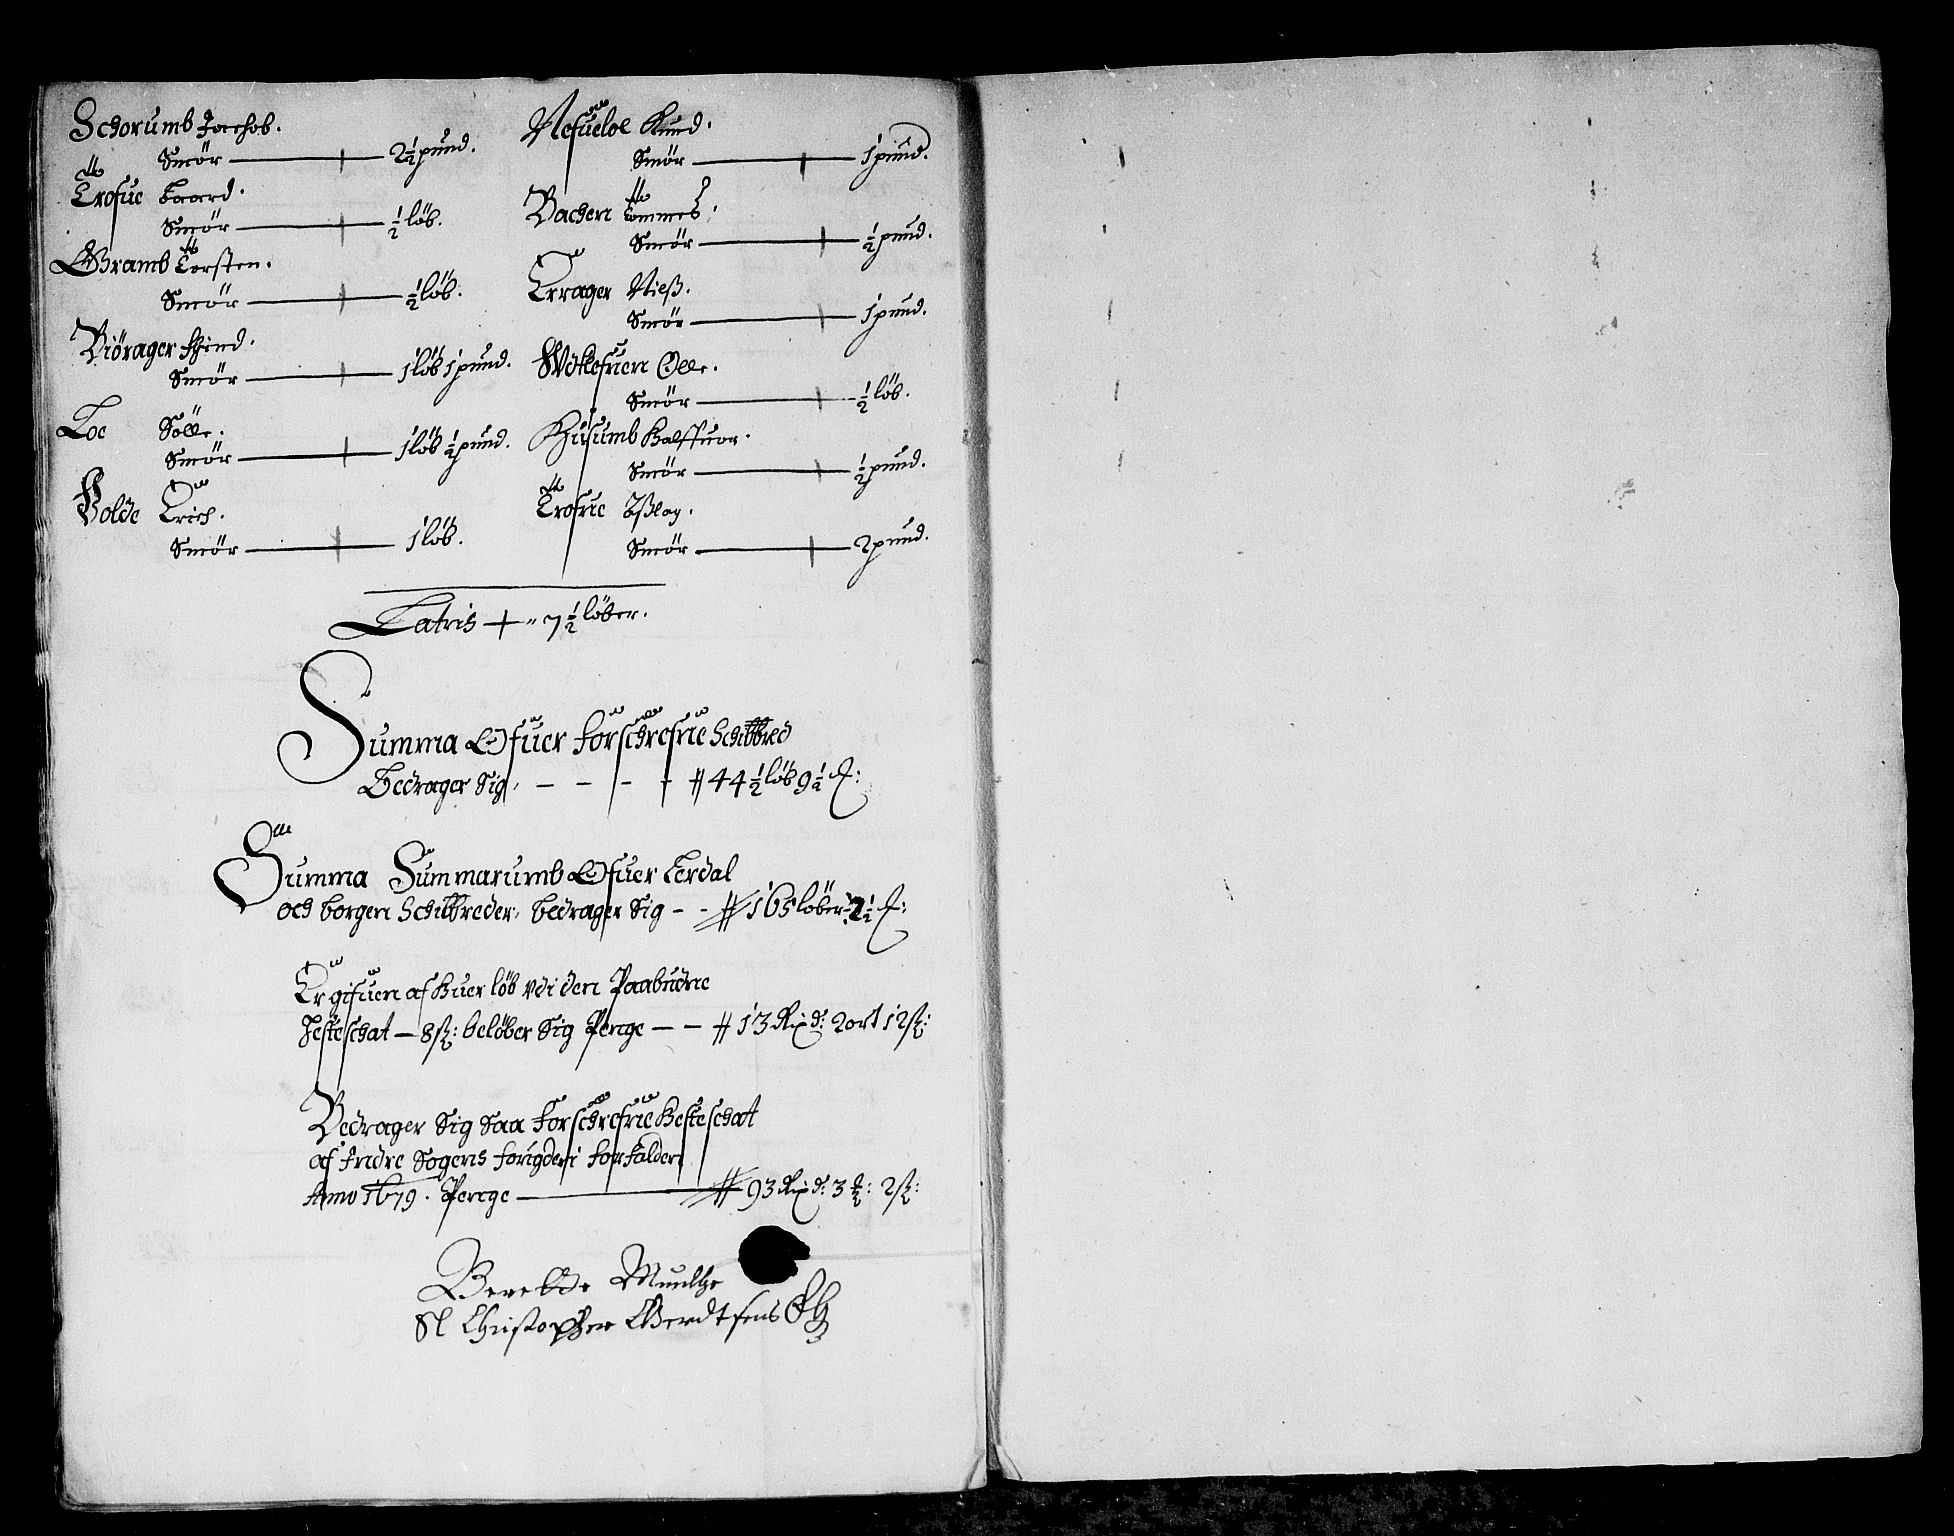 Schorumb Jachob.
Smør — 2½ pund.
Erefue Baard.
Smør — ½ løb.
Gramb Torsten.
Smør — ½ løb.
Biörager Ejend.
Smør — 1 løb 1 pund.
Loe Sølle.
Smør — 1 løb ½ pund.
Volde Erich.
Smør — 1 løb.
Nefueloe Knud.
Smør — 1 pund.
Bachen Tommes.
Smør — ½ pund.
Errager Nielß.
Smør — 1 pund.
Olle.
Smør — ½ løb.
Husumb Halffuor.
Smør — ½ pund.
Trofue Aßlag.
Smør — 2 pund.
Latris + " 7½ løber.
Summa Ofuer forschrefne Schibbred
Bedrager Sig, - - - - # 44½ løb 9½
Summa Summarumb Ofuer Lerdal
och borgen Schibbreder, bedrager Sig - - # 165 løber 2½
Er gifuen af huer løb udi den Paabudne
Hesteschat — 8 ß: beløber Sig Penge — — # 13 Rixd: 2 ort 12 ß:
Bedrager Sig Saa forschrefne hesteschat
af Indre Sogens fougderi forfalden
Anno 1679. Penge — # 93 Rixd: 3 2 ß:
Munthe
Sl Christopher Gierdtsens